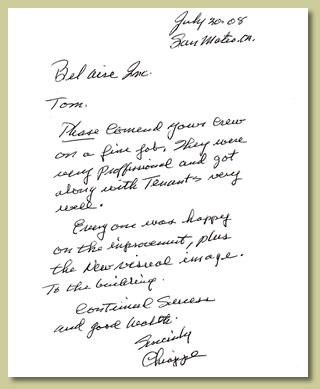 July 30-08
San Mateo, CA.
Bel aire Inc.
Tom.
Please Comend your Crew
on a fine job, They were
very Proffisional and got
along with Tenants very
well.
Every one was happy
on the improvement, plus
the New visual image.
To the building.
Continual Success
and good health.
Sincerly